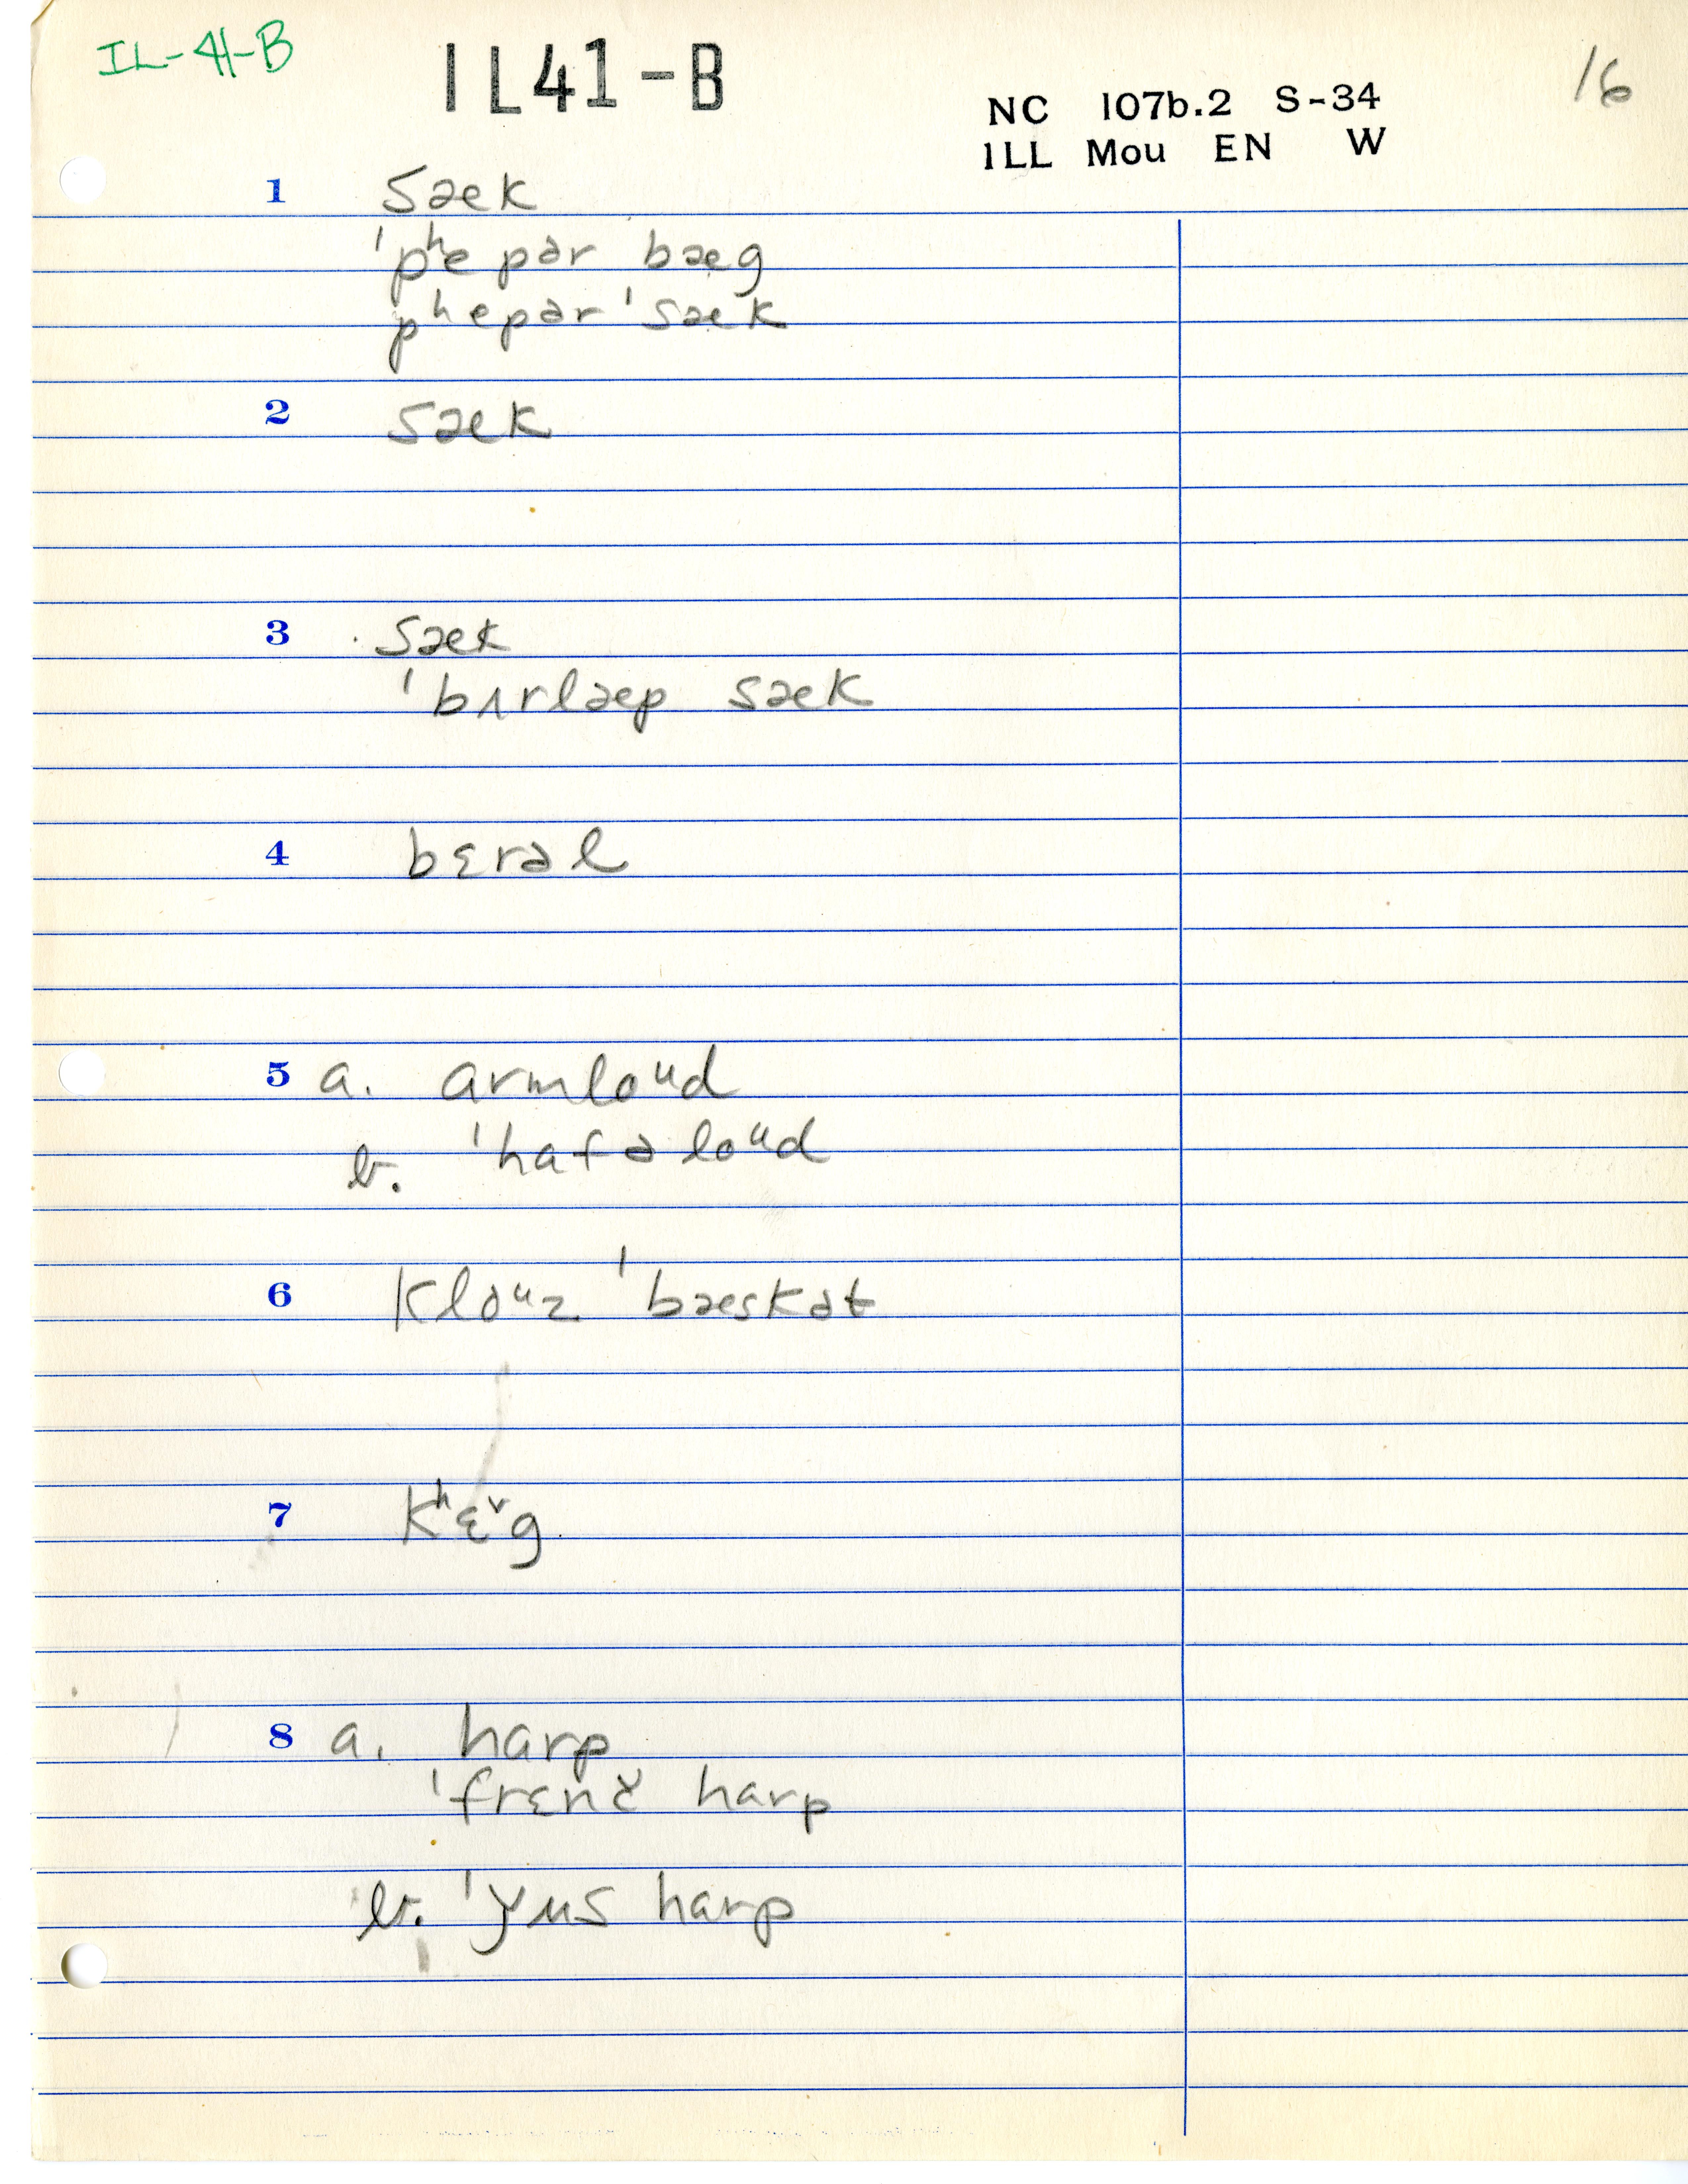 IL-41-B
IL41-B
16
NC 107b.2 S-34
ILL Mou EN W
1 sæk
ˈpʰe pər bæg
pʰepər ˈsæk
2 sæk
3 sæk
ˈbɪrlæp sæk
4 bɛrəl
5 a. armloᵘd
b. ˈhaf ə loᵘd
6 kloᵘz ˈbæskət
7 kʰɛᵛg
8 a. harp
ˈfrɛnč harp
b. ˈǰus harp